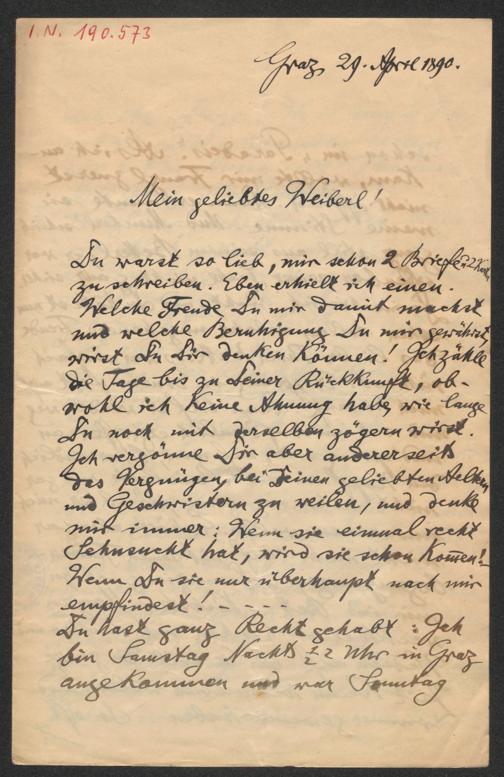 I.N. 190.573
Graz, 29. April 1890.
Mein geliebtes Weiberl!
Du warst so lieb, mir schon 2 Briefe u 2 Kart.
zu schreiben. Eben erhielt ich einen.
Welche Freude Du mir damit machst
und welche Beruhigung Du mir gewährst,
wirst Du Dir denken können! Ich zähle
die Tage bis zu Deiner Rückkunft, ob-
wohl ich keine Ahnung habe, wie lange
Du noch mit derselben zögern wirst.
Ich vergönne Dir aber andererseits
das Vergnügen, bei Deinen geliebten Aeltern
und Geschwistern zu weilen, und denke
mir immer: Wenn sie einmal recht
Sehnsucht hat, wird sie schon kom̅en! -
Wenn Du sie nur überhaupt nach mir
empfindest! - - - -
Du hast ganz Recht gehabt: Ich
bin Samstag Nachts ½ 2 Uhr in Graz
angekommen und war Sonntag